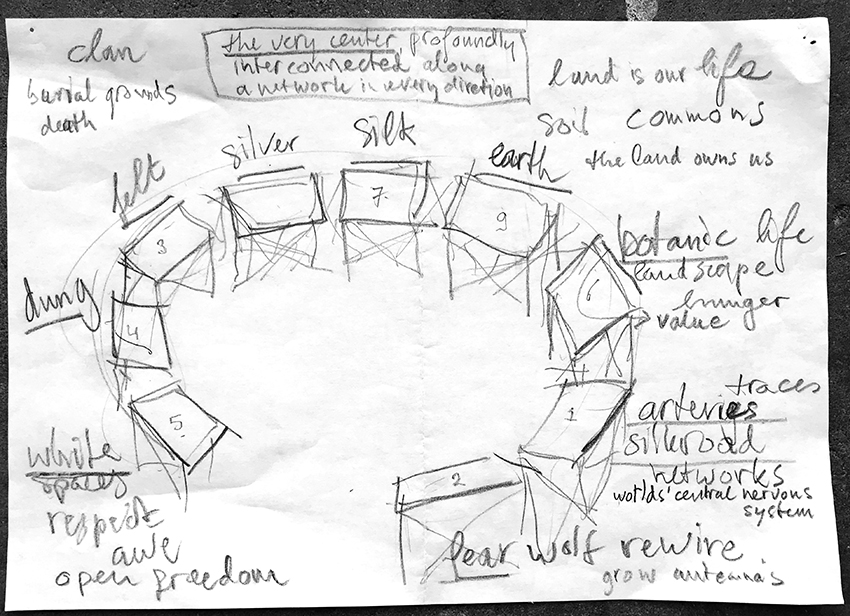 clan
burial grounds
death
the very center, profoundly
interconnected along
a network in every direction
land is our life
soil commons
the land owns us
felt
silver
silk
earth
3
7
9
dung
4
botanic life
landscape
hunger
value
6
5
1
traces
arteries
silkroad
networks
worlds' central nervous
system
white
spaces
respect
awe
open freedom
2
fear wolf rewire
grow antenna's